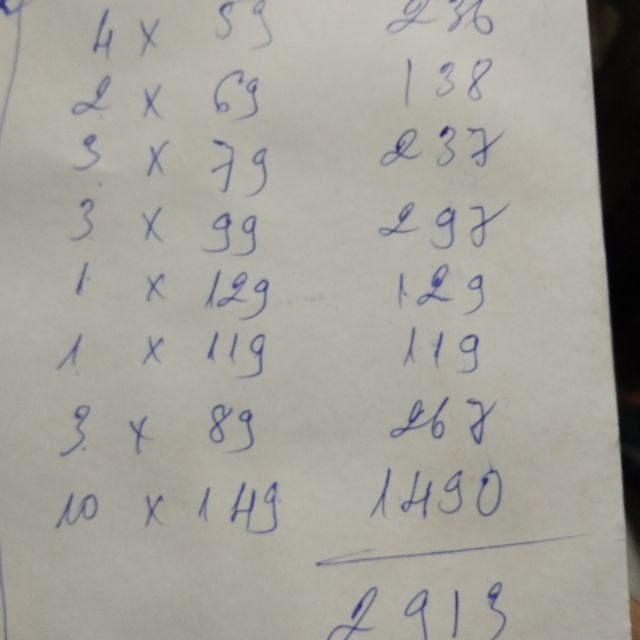 4 x 59 236
2 x 69 138
3 x 79 237
3 x 99 297
1 x 129 129
1 x 119 119
3 x 89 267
10 x 149 1490
2913